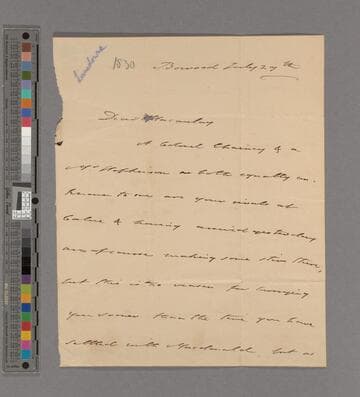 Lansdowne
1830
Bowood July 29th
Dear Macaulay
A Colonel Cheney & a
Mr Hopkinson as both equally un-
known to me are your rivals at
Calne & having arrived yesterday
are of course making some stir there,
but this is no reason for hurrying
you sooner than the time you have
settled with Macdonald, but as